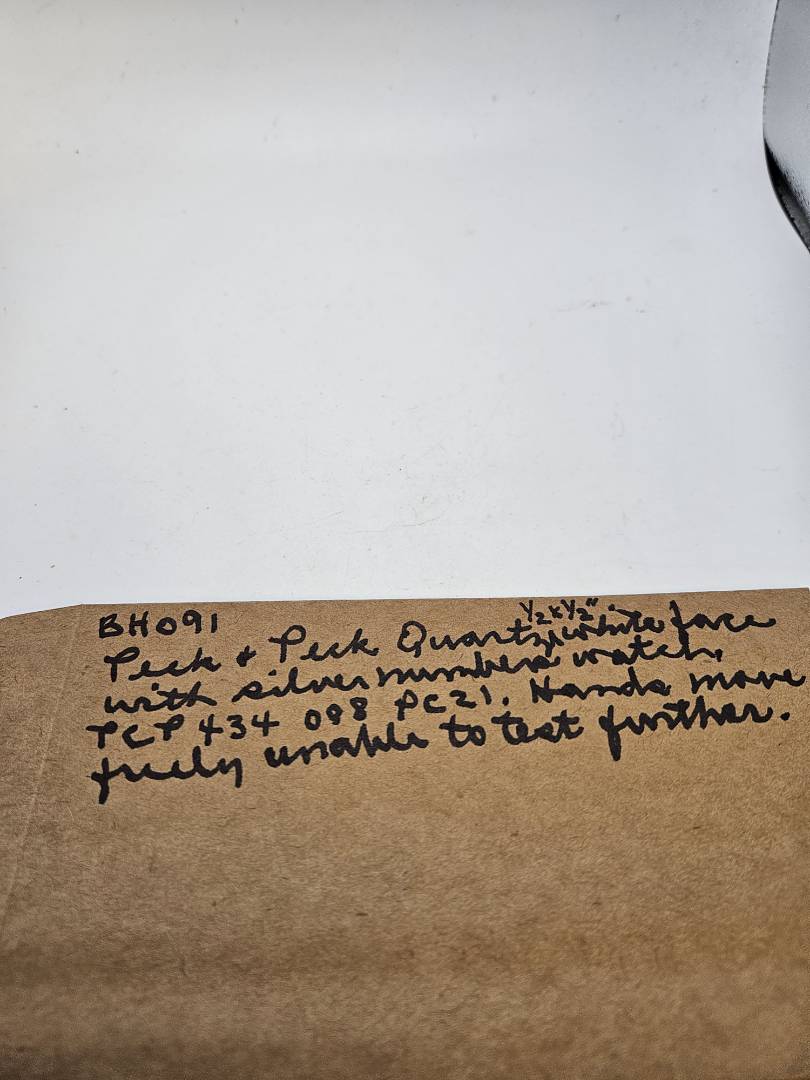 BH091
Peck & Peck Quartz, 1/2 x 1/2" white face
with silver numbers watch,
PCP 434 098 PC21. Hands move
freely unable to test further.